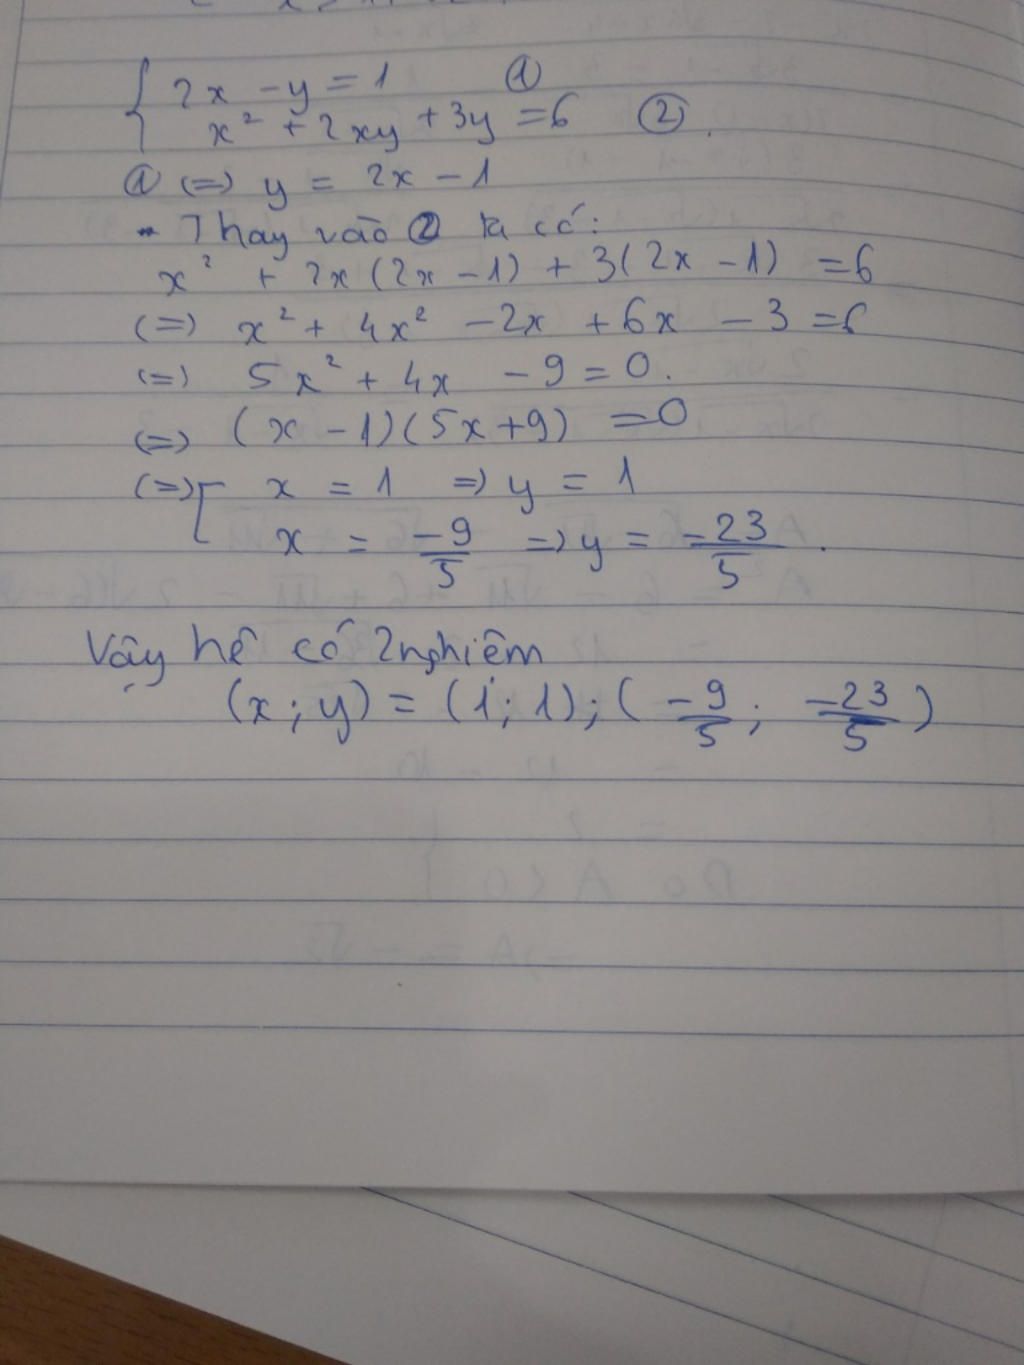 2x - y = 1 ①
x² + 2xy + 3y = 6 ②.
① (=) y = 2x - 1
- Thay vào ② ta có:
x² + 2x(2x - 1) + 3(2x - 1) = 6
(=) x² + 4x² - 2x + 6x - 3 = 6
(=) 5x² + 4x - 9 = 0.
(=) (x - 1)(5x + 9) = 0
(=) [ x = 1 => y = 1
x = -9/5 => y = -23/5.
Vậy hệ có 2 nghiệm
(x; y) = (1; 1); (-9/5; -23/5)